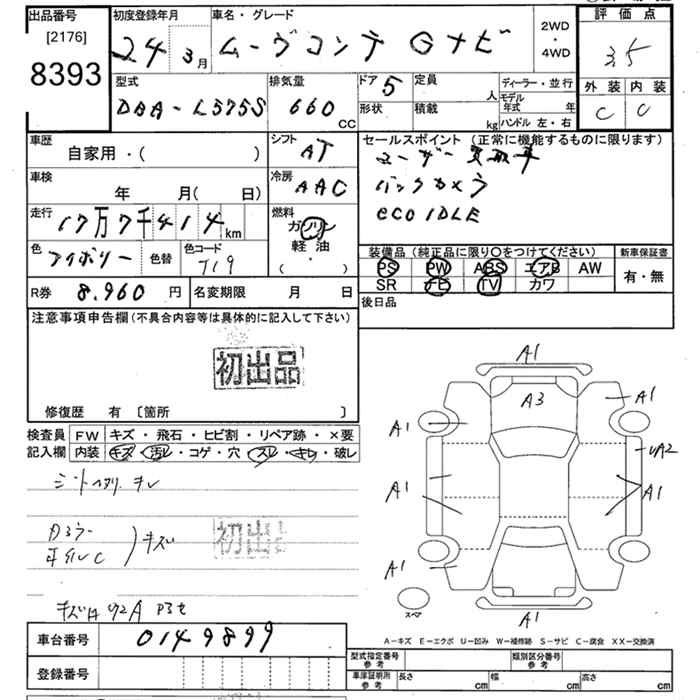 出品番号
[2176]
8393
初度登録年月
24 3月
車名・グレード
ムーヴコンテ Gナビ
2WD
・
4WD
評価点
3.5
外装 内装
C C
型式
DBA-L575S
排気量
660 CC
ドア 5
形状
定員 人
積載 kg
ディーラー・並行
モデル年式 年
ハンドル 左・右
車歴
自家用・( )
車検
年 月( 日)
走行
17万7千414km
色
アイボリー
色替
色コード
T19
R券
8,960円
名変期限 月 日
シフト
AT
冷房
AAC
燃料
ガソリン
軽油
( ・ )
セールスポイント (正常に機能するものに限ります)
ユーザー買取車
バックカメラ
eco IDLE
装備品 (純正品に限り○をつけてください)
PS PW ABS エアB AW
SR FE TV カワ
新車保証書
有・無
後日品
注意事項申告欄 (不具合内容等は具体的に記入して下さい)
初出品
修復歴 有 〔箇所 〕
検査員記入欄
FW キズ・飛石・ヒビ割・リペア跡・×要
内装 キズ・汚レ・コゲ・穴・スレ・キレ・破レ
初出品
キズ
車台番号
0149899
登録番号
A1
A3
A1
A1
UA2
A1
A1
A1
A1
スペア
A-キズ E-エクボ U-凹み W-補修跡 S-サビ C-腐食 XX-交換済
型式指定番号
参考
類別区分番号
参考
車庫証明所
参考
長さ cm 幅 cm 高さ cm